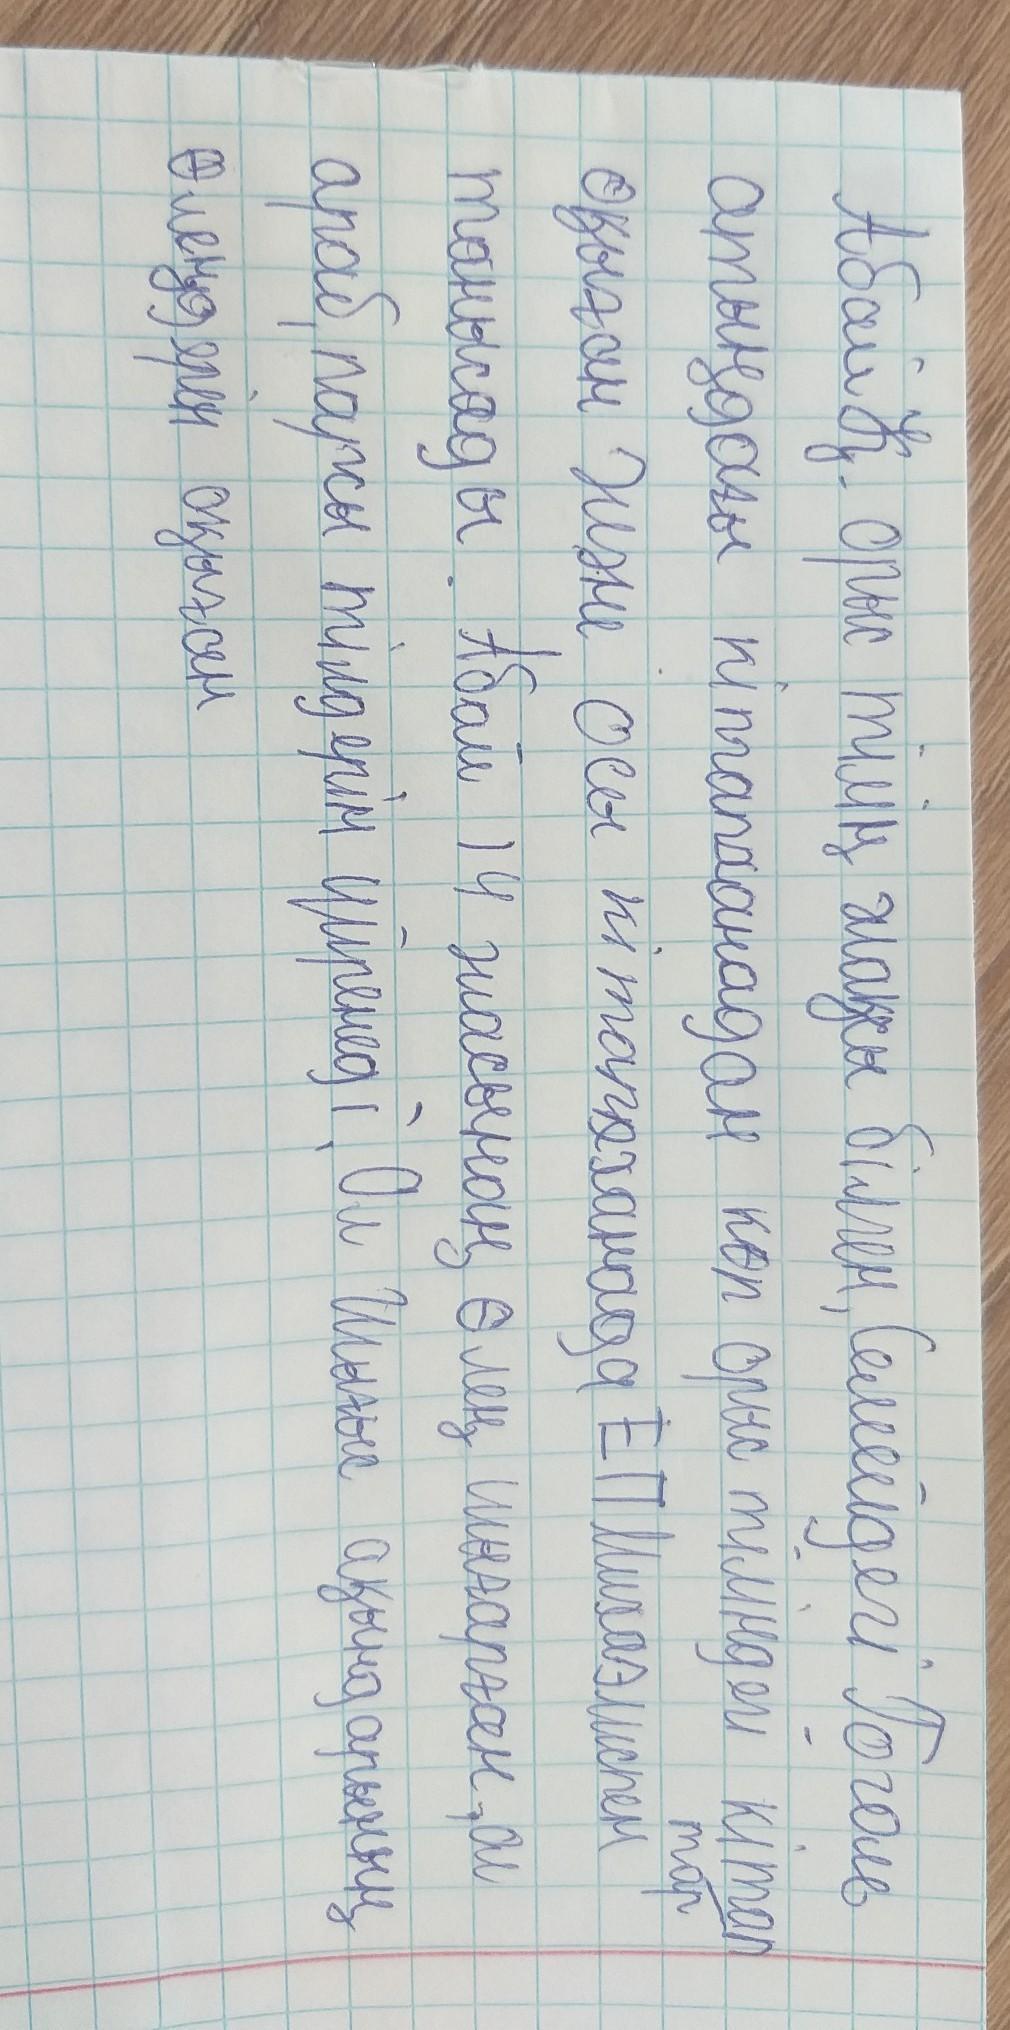 Абай Қ. орыс тілің жақсы білген, Семейдегі Гоголь
атындағы кітапханадан көп орыс тіліндегі кітап
тар
оқыған Және Осы кітапханада Е П Михаэлиспен
танысады. Абай 14 жасынаң өлең шығарған, ол
араб, парсы тілдерін үйренеді, Ол Шығыс ақындарының
өлеңдерін оқыған